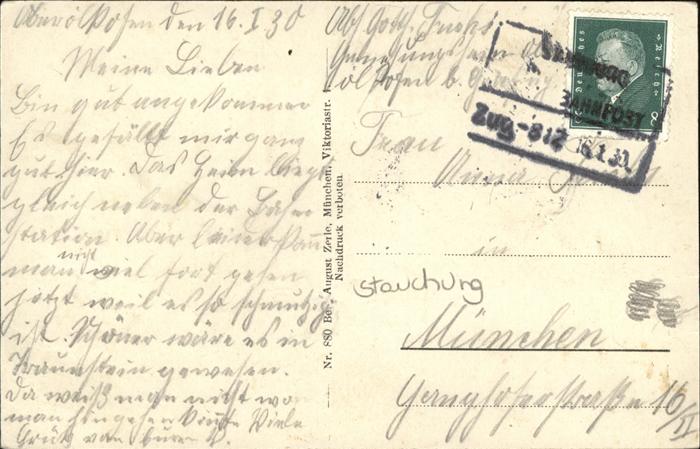 Oberölkofen den 16. I 30
Meine Lieben
Bin gut angekommen
Es gefällt mir ganz
gut hier. Das Heim liegt
gleich neben der Bahn
station. Aber leider kann
man nicht viel fort gehen
jetzt weil es so schmutzig
ist. Schöner wäre es in
Traunstein gewesen.
Da weiß man nicht wo
man hingehen könnte Viele
Grüße von
Nr. 880 August Zerle, München, Viktoriastr. 1
Nachdruck verboten
Abs. Fuchs
Genesungsheim
ölkofen b.
Deutsches Reich
8
BAHNPOST
Zug-812 16.1.30
Frau
Anna
in
Stauchung
München
16/II